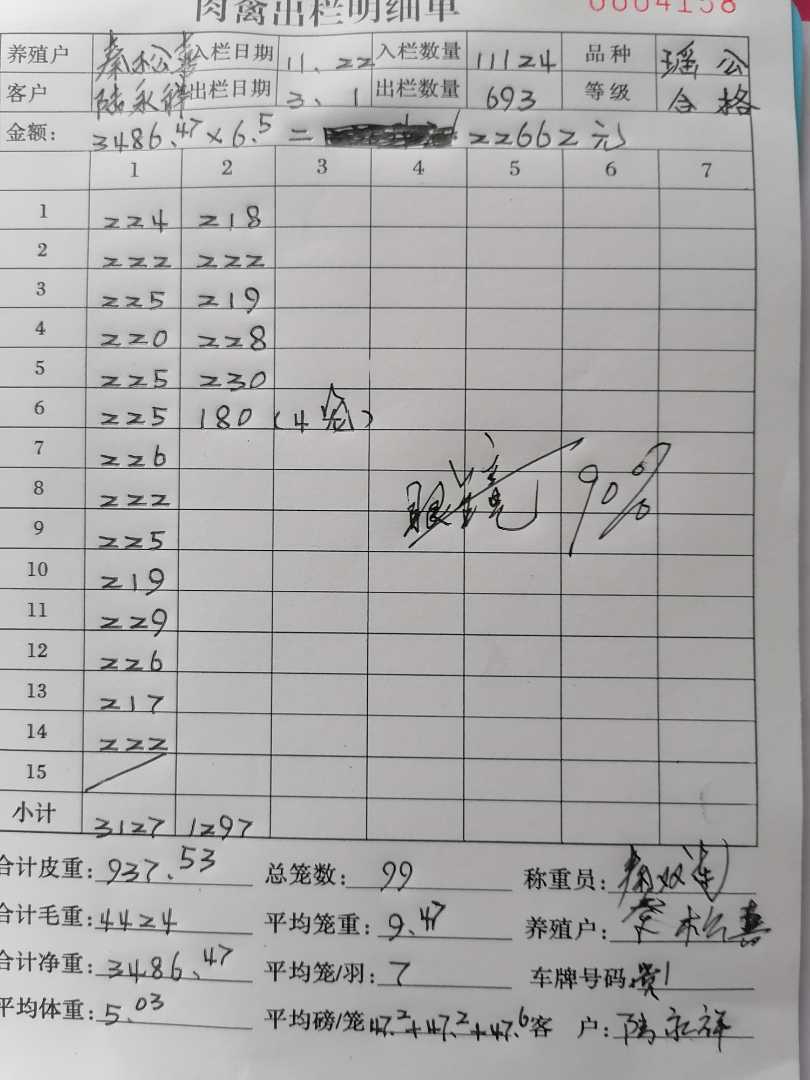 肉禽出栏明细单 0004158
养殖户 秦松 入栏日期 11.22 入栏数量 11124 品种 瑶公
客户 陆永祥 出栏日期 3.1 出栏数量 693 等级 合格
金额: 3486.47×6.5= 22662元
1 2 3 4 5 6 7
1 224 218
2 222 222
3 225 219
4 220 228
5 225 230
6 225 180 (4笼)
7 226
8 222 眼镜 90%
9 225
10 219
11 229
12 226
13 217
14 222
15
小计 3127 1297
合计皮重: 937.53 总笼数: 99 称重员:
合计毛重: 4424 平均笼重: 9.47 养殖户: 秦松
合计净重: 3486.47 平均笼/羽: 7 车牌号码: 1
平均体重: 5.03 平均磅/笼 47.2+47.2+47.6 客 户: 陆永祥